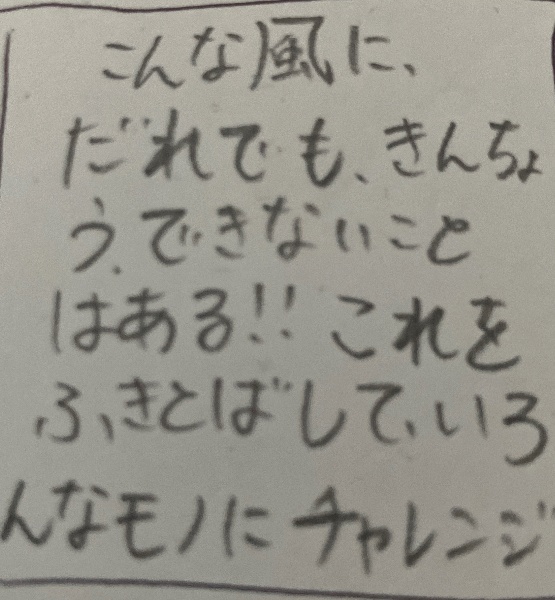 こんな風に、
だれでも、きんちょ
う、できないこと
はある!! これを
ふ、きとばして、いろ
んなモノにチャレンジ